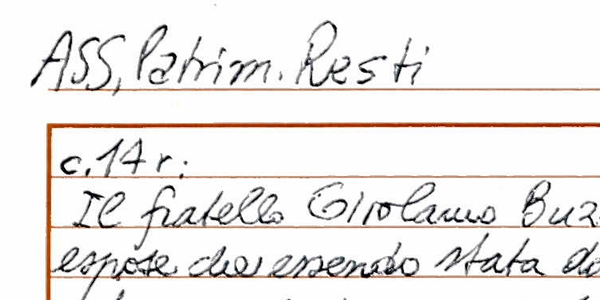 ASS, Patrim. Resti
c. 14 r:
Il fratello Girolamo Buz
espose che essendo stata da